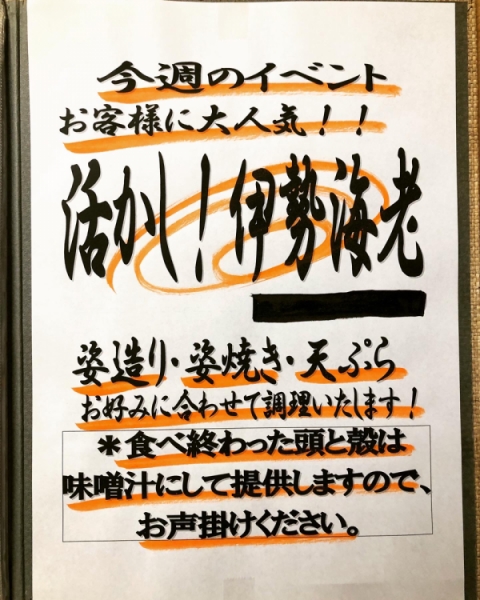 今週のイベント
お客様に大人気！！
活かし！伊勢海老
姿造り・姿焼き・天ぷら
お好みに合わせて調理いたします！
＊食べ終わった頭と殻は
味噌汁にして提供しますので、
お声掛けください。